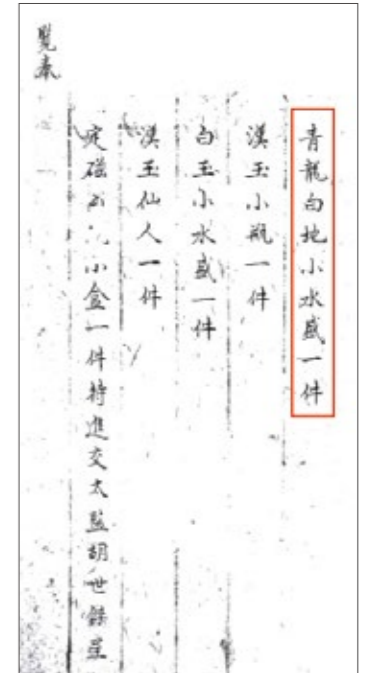 青龍白地小水盛一件
漢玉小瓶一件
白玉小水盛一件
漢玉仙人一件
定磁 小盒一件持進交太監胡世傑呈
覽奉